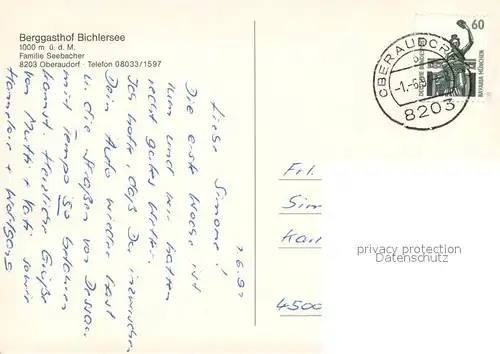 Berggasthof Bichlersee
1000 m ü. d. M.
Familie Seebacher
8203 Oberaudorf · Telefon 08033/1597
1.6.90
Liebe Simone!
Die erste Woche ist
rum und wir hatten
recht gutes Wetter.
Ich hoffe, daß Du inzwischen
Dein Auto wieder hast
u. die Straßen von Dessau
mit Tempo 30 befahren
kannst. Herzliche Grüße
von Mutti + Vati sowie
Hannelore + Wolfgang
60
DEUTSCHE BUNDESPOST
BAVARIA MÜNCHEN
OBERAUDORF
-1.-6.9
8203
Frl.
Sim
Kan
4500
privacy protection
ansichtskarten-lexikon.de